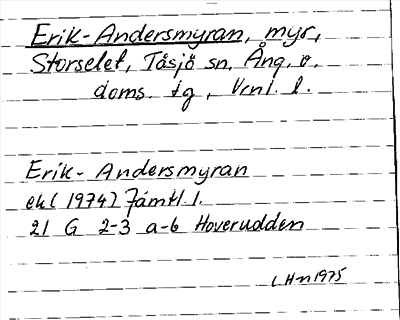 Erik-Andersmyran, myr,
Storselet, Tåsjö sn, Ång. v.
doms. tg, Vcnl. l.
Erik-Andersmyran
ek (1974) Jämtl. l.
21 G 2-3 a-b Hoverudden
L Hn 1975